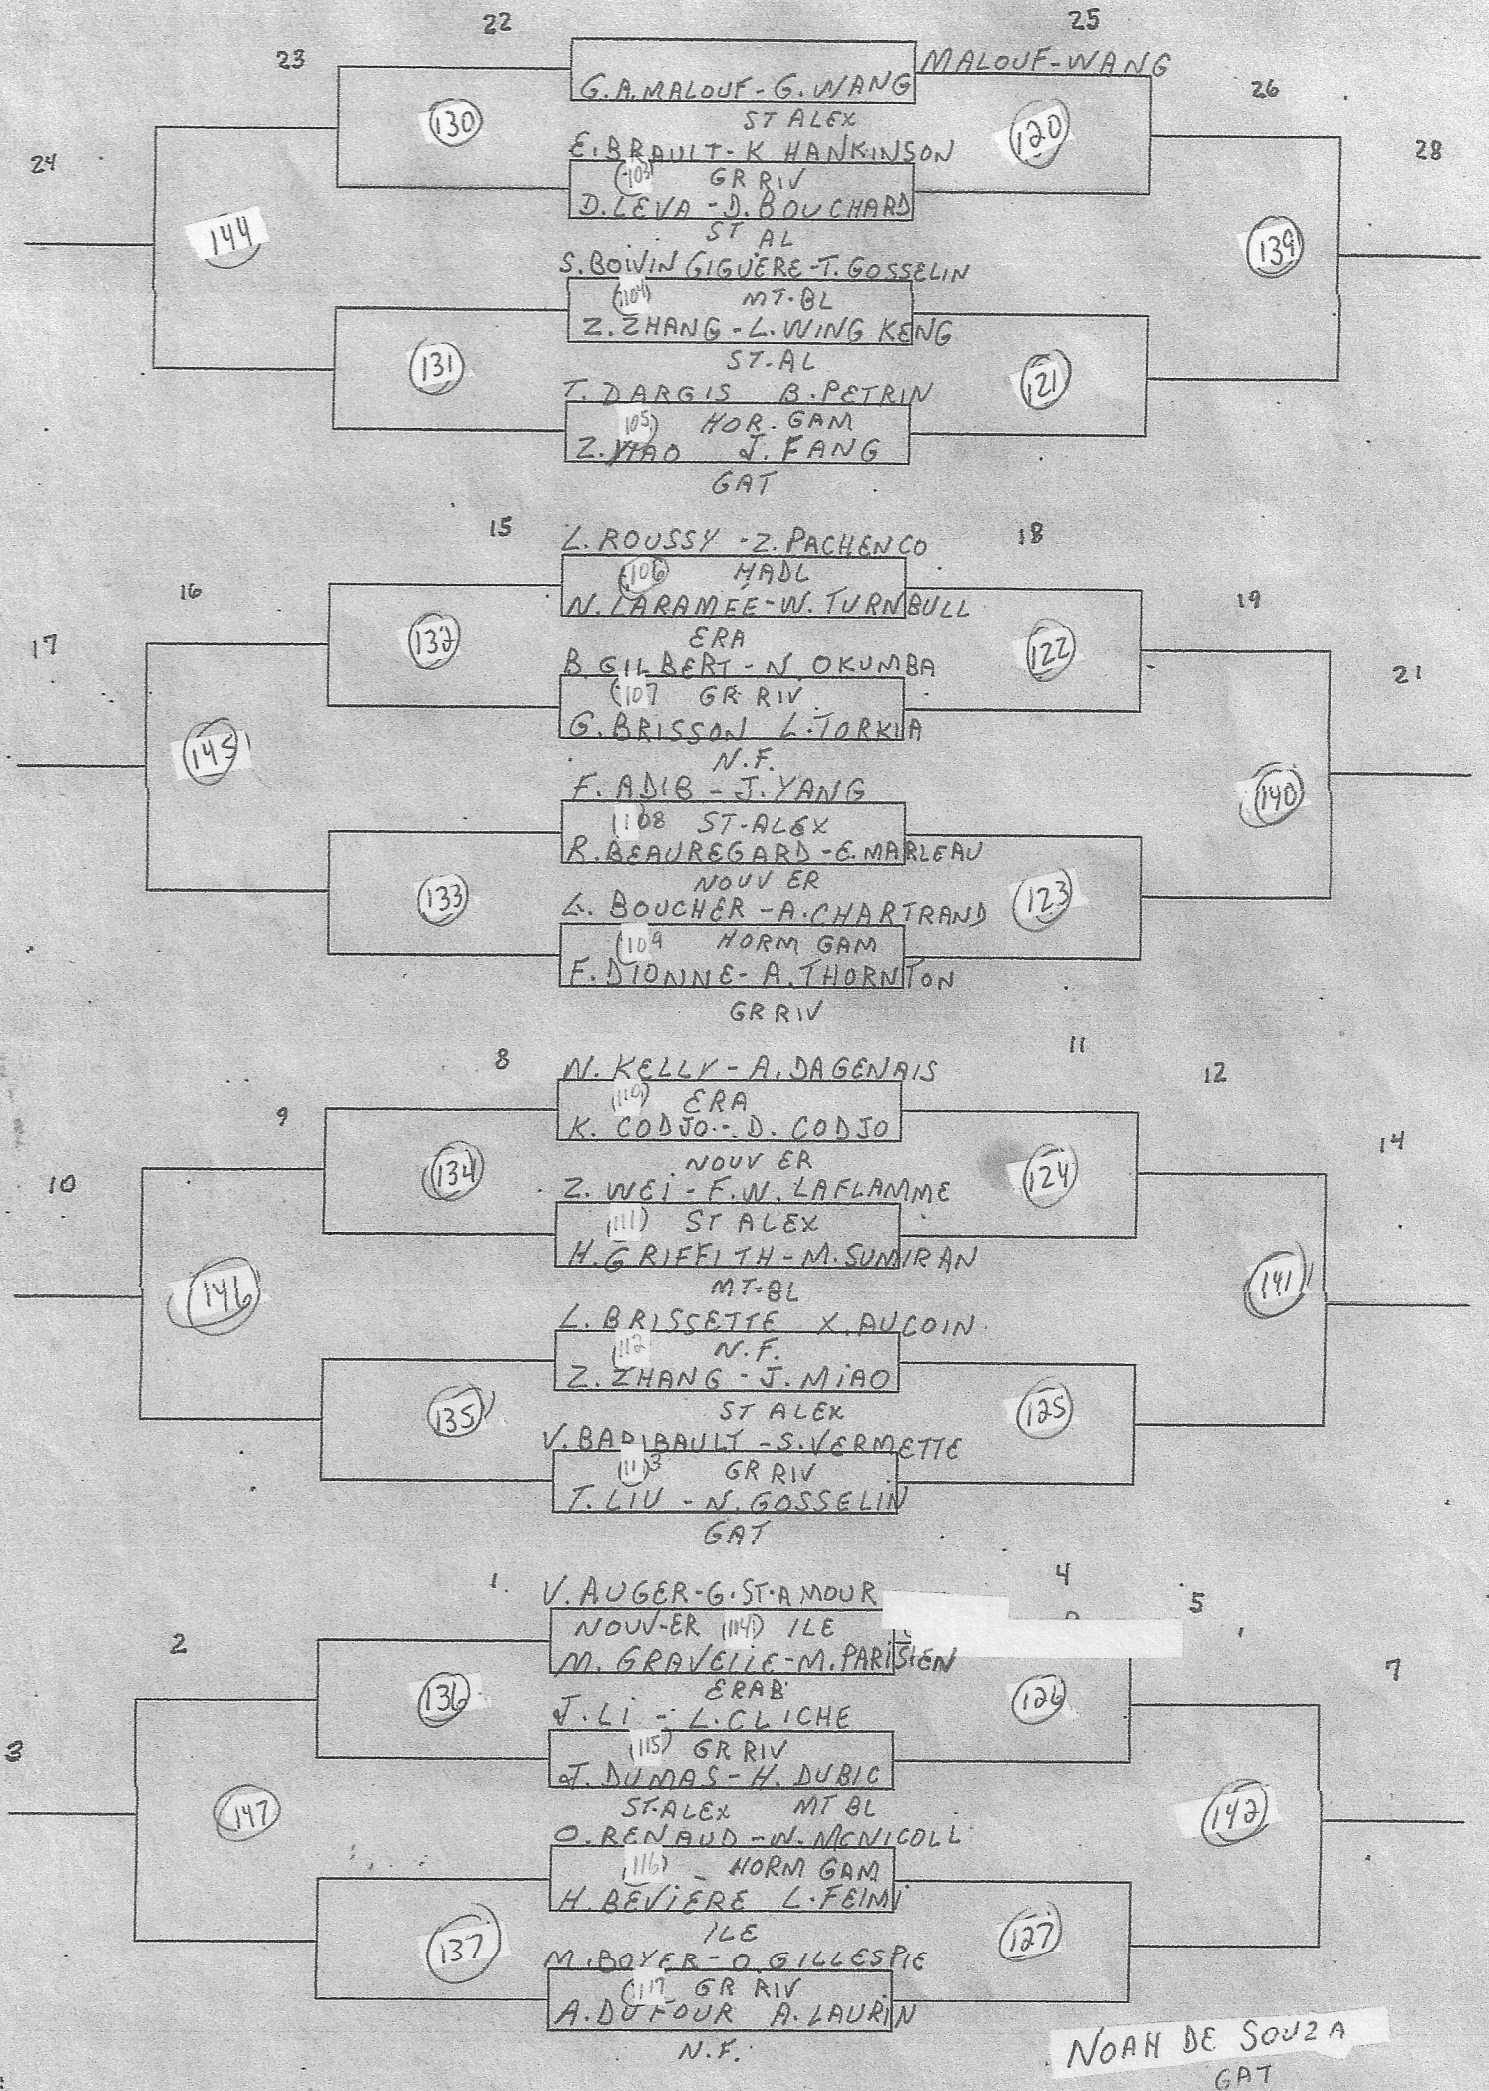 22 25
23 MALOUF-WANG
G.A.MALOUF-G.WANG 26
130 ST ALEX 120
24 E.BRAULT-K HANKINSON 28
(103) GR RIV
D.LEVA-D.BOUCHARD
144 ST AL 139
S.BOIVIN GIGUERE-T.GOSSELIN
(104) MT-BL
Z.ZHANG-L.WING KENG
131 ST-AL 121
T. DARGIS B.PETRIN
105) HOR.GAM
Z. J.FANG
GAT
15 L.ROUSSY-Z.PACHENCO 18
16 (106) HADL 19
N.LARAMÉE-W.TURNBULL
17 132 ERA 122
B.GILBERT-N.OKUMBA 21
(107 GR RIV
G.BRISSON L.TORKIA
145 N.F.
F.ADIB-J.YANG 140
(108 ST-ALEX
R.BEAUREGARD-E.MARLEAU
133 NOUV ER 123
BOUCHER-A.CHARTRAND
(109 HORM GAM
F.DIONNE-A.THORNTON
GR RIV
8 N.KELLY-A.DAGENAIS 11
9 (110) ERA 12
K.CODJO-D.CODJO
10 134 NOUV ER 124 14
Z.WEI-F.W.LAFLAMME
(111) ST ALEX
H.GRIFFITH-M.SUMIRAN
146 MT-BL 141
L.BRISSETTE X.AUCOIN
(112 N.F.
Z.ZHANG-J.MIAO
135 ST ALEX 125
V.BARIBAULT-S.VERMETTE
(113 GR RIV
T.LIU-N.GOSSELIN
GAT
1. V.AUGER-G.ST-AMOUR 4
2 NOUV-ER (114) ILE 5
M.GRAVELLE-M.PARISIEN
136 ERAB 126 7
3 J.LI-L.CLICHE
(115) GR RIV
J.DUMAS-H.DUBIC
147 ST-ALEX MT BL 142
O.RENAUD-N.MCNICOLL
(116) - HORM GAM
H.BÉVIÈRE L.FEIMI
137 ILE 127
M.BOYER-O.GILLESPIE
(117 GR RIV
A.DUFOUR A.LAURIN
N.F.
NOAH DE SOUZA
GAT